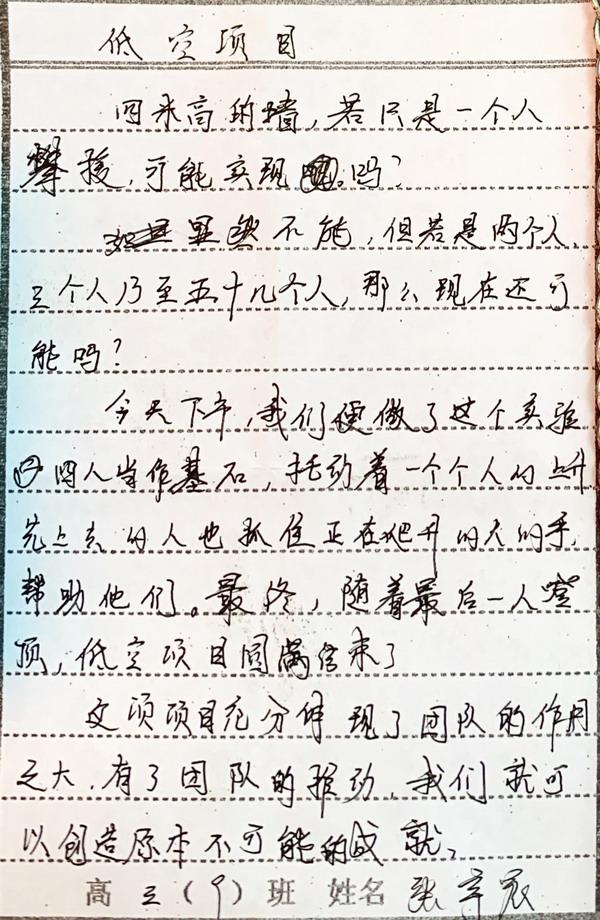 低空项目
四米高的墙，若只是一个人
攀援，可能实现吗？
显然不能，但若是两个人
三个人乃至五十几个人，那么现在还可
能吗？
今天下午，我们便做了这个实验
四人当作基石，托动着一个个人的上升
先上去的人也抓住正在爬升的人的手，
帮助他们。最终，随着最后一人登
顶，低空项目圆满结束了
这项项目充分体现了团队的作用
之大，有了团队的推动，我们就可
以创造原本不可能的成就。
高三（9）班 姓名 张